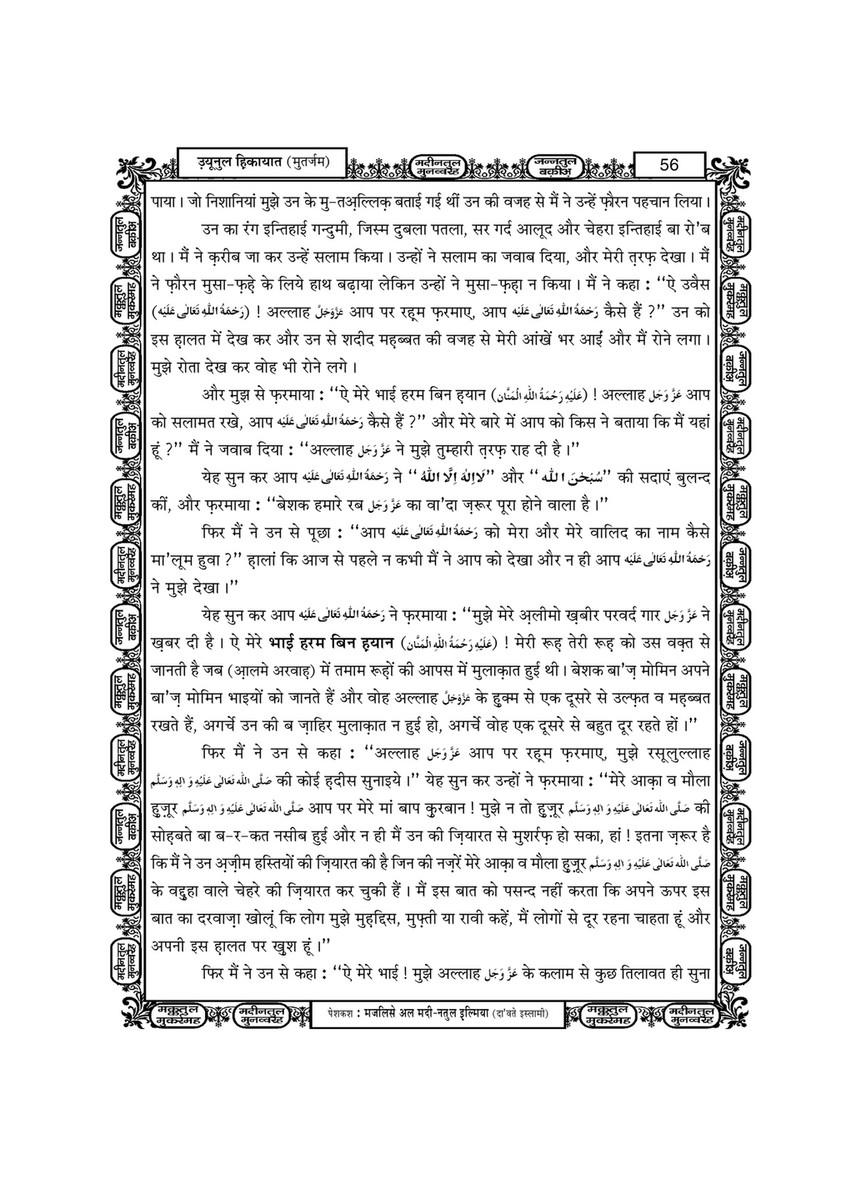 उ़यूनुल हि़कायात (मुतर्जम)
मदीनतुल मुनव्वरह
जन्नतुल बक़ीअ़
56
पाया । जो निशानियां मुझे उन के मु-तअ़ल्लिक़ बताई गई थीं उन की वजह से मैं ने उन्हें फ़ौरन पहचान लिया ।
उन का रंग इन्तिहाई गन्दुमी, जिस्म दुबला पतला, सर गर्द आलूद और चेहरा इन्तिहाई बा रो'ब
था । मैं ने क़रीब जा कर उन्हें सलाम किया । उन्होंने सलाम का जवाब दिया, और मेरी त़रफ़ देखा । मैं
ने फ़ौरन मुसा-फ़ह़े के लिये हाथ बढ़ाया लेकिन उन्होंने मुसा-फ़ह़ा न किया । मैं ने कहा : “ऐ उवैस
(رَحْمَةُ اللّٰهِ تَعَالٰى عَلَيْه) ! अल्लाह عَزَّوَجَلَّ आप पर रह़म फ़रमाए, आप رَحْمَةُ اللّٰهِ تَعَالٰى عَلَيْه कैसे हैं ?” उन को
इस हालत में देख कर और उन से शदीद महब्बत की वजह से मेरी आंखें भर आईं और मैं रोने लगा ।
मुझे रोता देख कर वोह भी रोने लगे ।
और मुझ से फ़रमाया : “ऐ मेरे भाई हरम बिन ह़यान (عَلَيْهِ رَحْمَةُ اللّٰهِ الْمَنَّان) ! अल्लाह عَزَّ وَجَل आप
को सलामत रखे, आप رَحْمَةُ اللّٰهِ تَعَالٰى عَلَيْه कैसे हैं ?” और मेरे बारे में आप को किस ने बताया कि मैं यहां
हूं ?” मैं ने जवाब दिया : “अल्लाह عَزَّ وَجَل ने मुझे तुम्हारी त़रफ़ राह दी है ।”
येह सुन कर आप رَحْمَةُ اللّٰهِ تَعَالٰى عَلَيْه ने “لَااِلٰهَ اِلَّا اللّٰهُ” और “سُبْحٰنَ اللّٰه” की सदाएं बुलन्द
कीं, और फ़रमाया : “बेशक हमारे रब عَزَّ وَجَل का वा'दा ज़रूर पूरा होने वाला है ।”
फिर मैं ने उन से पूछा : “आप رَحْمَةُ اللّٰهِ تَعَالٰى عَلَيْه को मेरा और मेरे वालिद का नाम कैसे
मा'लूम हुवा ?” हालां कि आज से पहले न कभी मैं ने आप को देखा और न ही आप رَحْمَةُ اللّٰهِ تَعَالٰى عَلَيْه
ने मुझे देखा ।”
येह सुन कर आप رَحْمَةُ اللّٰهِ تَعَالٰى عَلَيْه ने फ़रमाया : “मुझे मेरे अ़लीमो ख़बीर परवर्द गार عَزَّ وَجَل ने
ख़बर दी है । ऐ मेरे भाई हरम बिन ह़यान (عَلَيْهِ رَحْمَةُ اللّٰهِ الْمَنَّان) ! मेरी रूह़ तेरी रूह़ को उस वक़्त से
जानती है जब (आ़लमे अरवाह़) में तमाम रूह़ों की आपस में मुलाक़ात हुई थी । बेशक बा'ज़ मोमिन अपने
बा'ज़ मोमिन भाइयों को जानते हैं और वोह अल्लाह عَزَّوَجَلَّ के हुक्म से एक दूसरे से उल्फ़त व महब्बत
रखते हैं, अगर्चे उन की ब ज़ाहिर मुलाक़ात न हुई हो, अगर्चे वोह एक दूसरे से बहुत दूर रहते हों ।”
फिर मैं ने उन से कहा : “अल्लाह عَزَّ وَجَل आप पर रह़म फ़रमाए, मुझे रसूलुल्लाह
صَلَّى اللّٰه تَعَالٰى عَلَيْهِ وَ اٰلِهٖ وَسَلَّم की कोई ह़दीस सुनाइये ।” येह सुन कर उन्होंने फ़रमाया : “मेरे आक़ा व मौला
हुज़ूर صَلَّى اللّٰه تَعَالٰى عَلَيْهِ وَ اٰلِهٖ وَسَلَّم आप पर मेरे मां बाप कुरबान ! मुझे न तो हुज़ूर صَلَّى اللّٰه تَعَالٰى عَلَيْهِ وَ اٰلِهٖ وَسَلَّم की
सोह़बते बा ब-र-कत नसीब हुई और न ही मैं उन की ज़ियारत से मुशर्रफ़ हो सका, हां ! इतना ज़रूर है
कि मैं ने उन अ़ज़ीम हस्तियों की ज़ियारत की है जिन की नज़रें मेरे आक़ा व मौला हुज़ूर صَلَّى اللّٰه تَعَالٰى عَلَيْهِ وَ اٰلِهٖ وَسَلَّم
के वद्दुह़ा वाले चेहरे की ज़ियारत कर चुकी हैं । मैं इस बात को पसन्द नहीं करता कि अपने ऊपर इस
बात का दरवाज़ा खोलूं कि लोग मुझे मुह़द्दिस, मुफ़्ती या रावी कहें, मैं लोगों से दूर रहना चाहता हूं और
अपनी इस हालत पर खुश हूं ।”
फिर मैं ने उन से कहा : “ऐ मेरे भाई ! मुझे अल्लाह عَزَّ وَجَل के कलाम से कुछ तिलावत ही सुना
मक्कतुल मुकर्रमह
मदीनतुल मुनव्वरह
पेशकश : मजलिसे अल मदी-नतुल इ़ल्मिया (दा'वते इस्लामी)
मक्कतुल मुकर्रमह
मदीनतुल मुनव्वरह